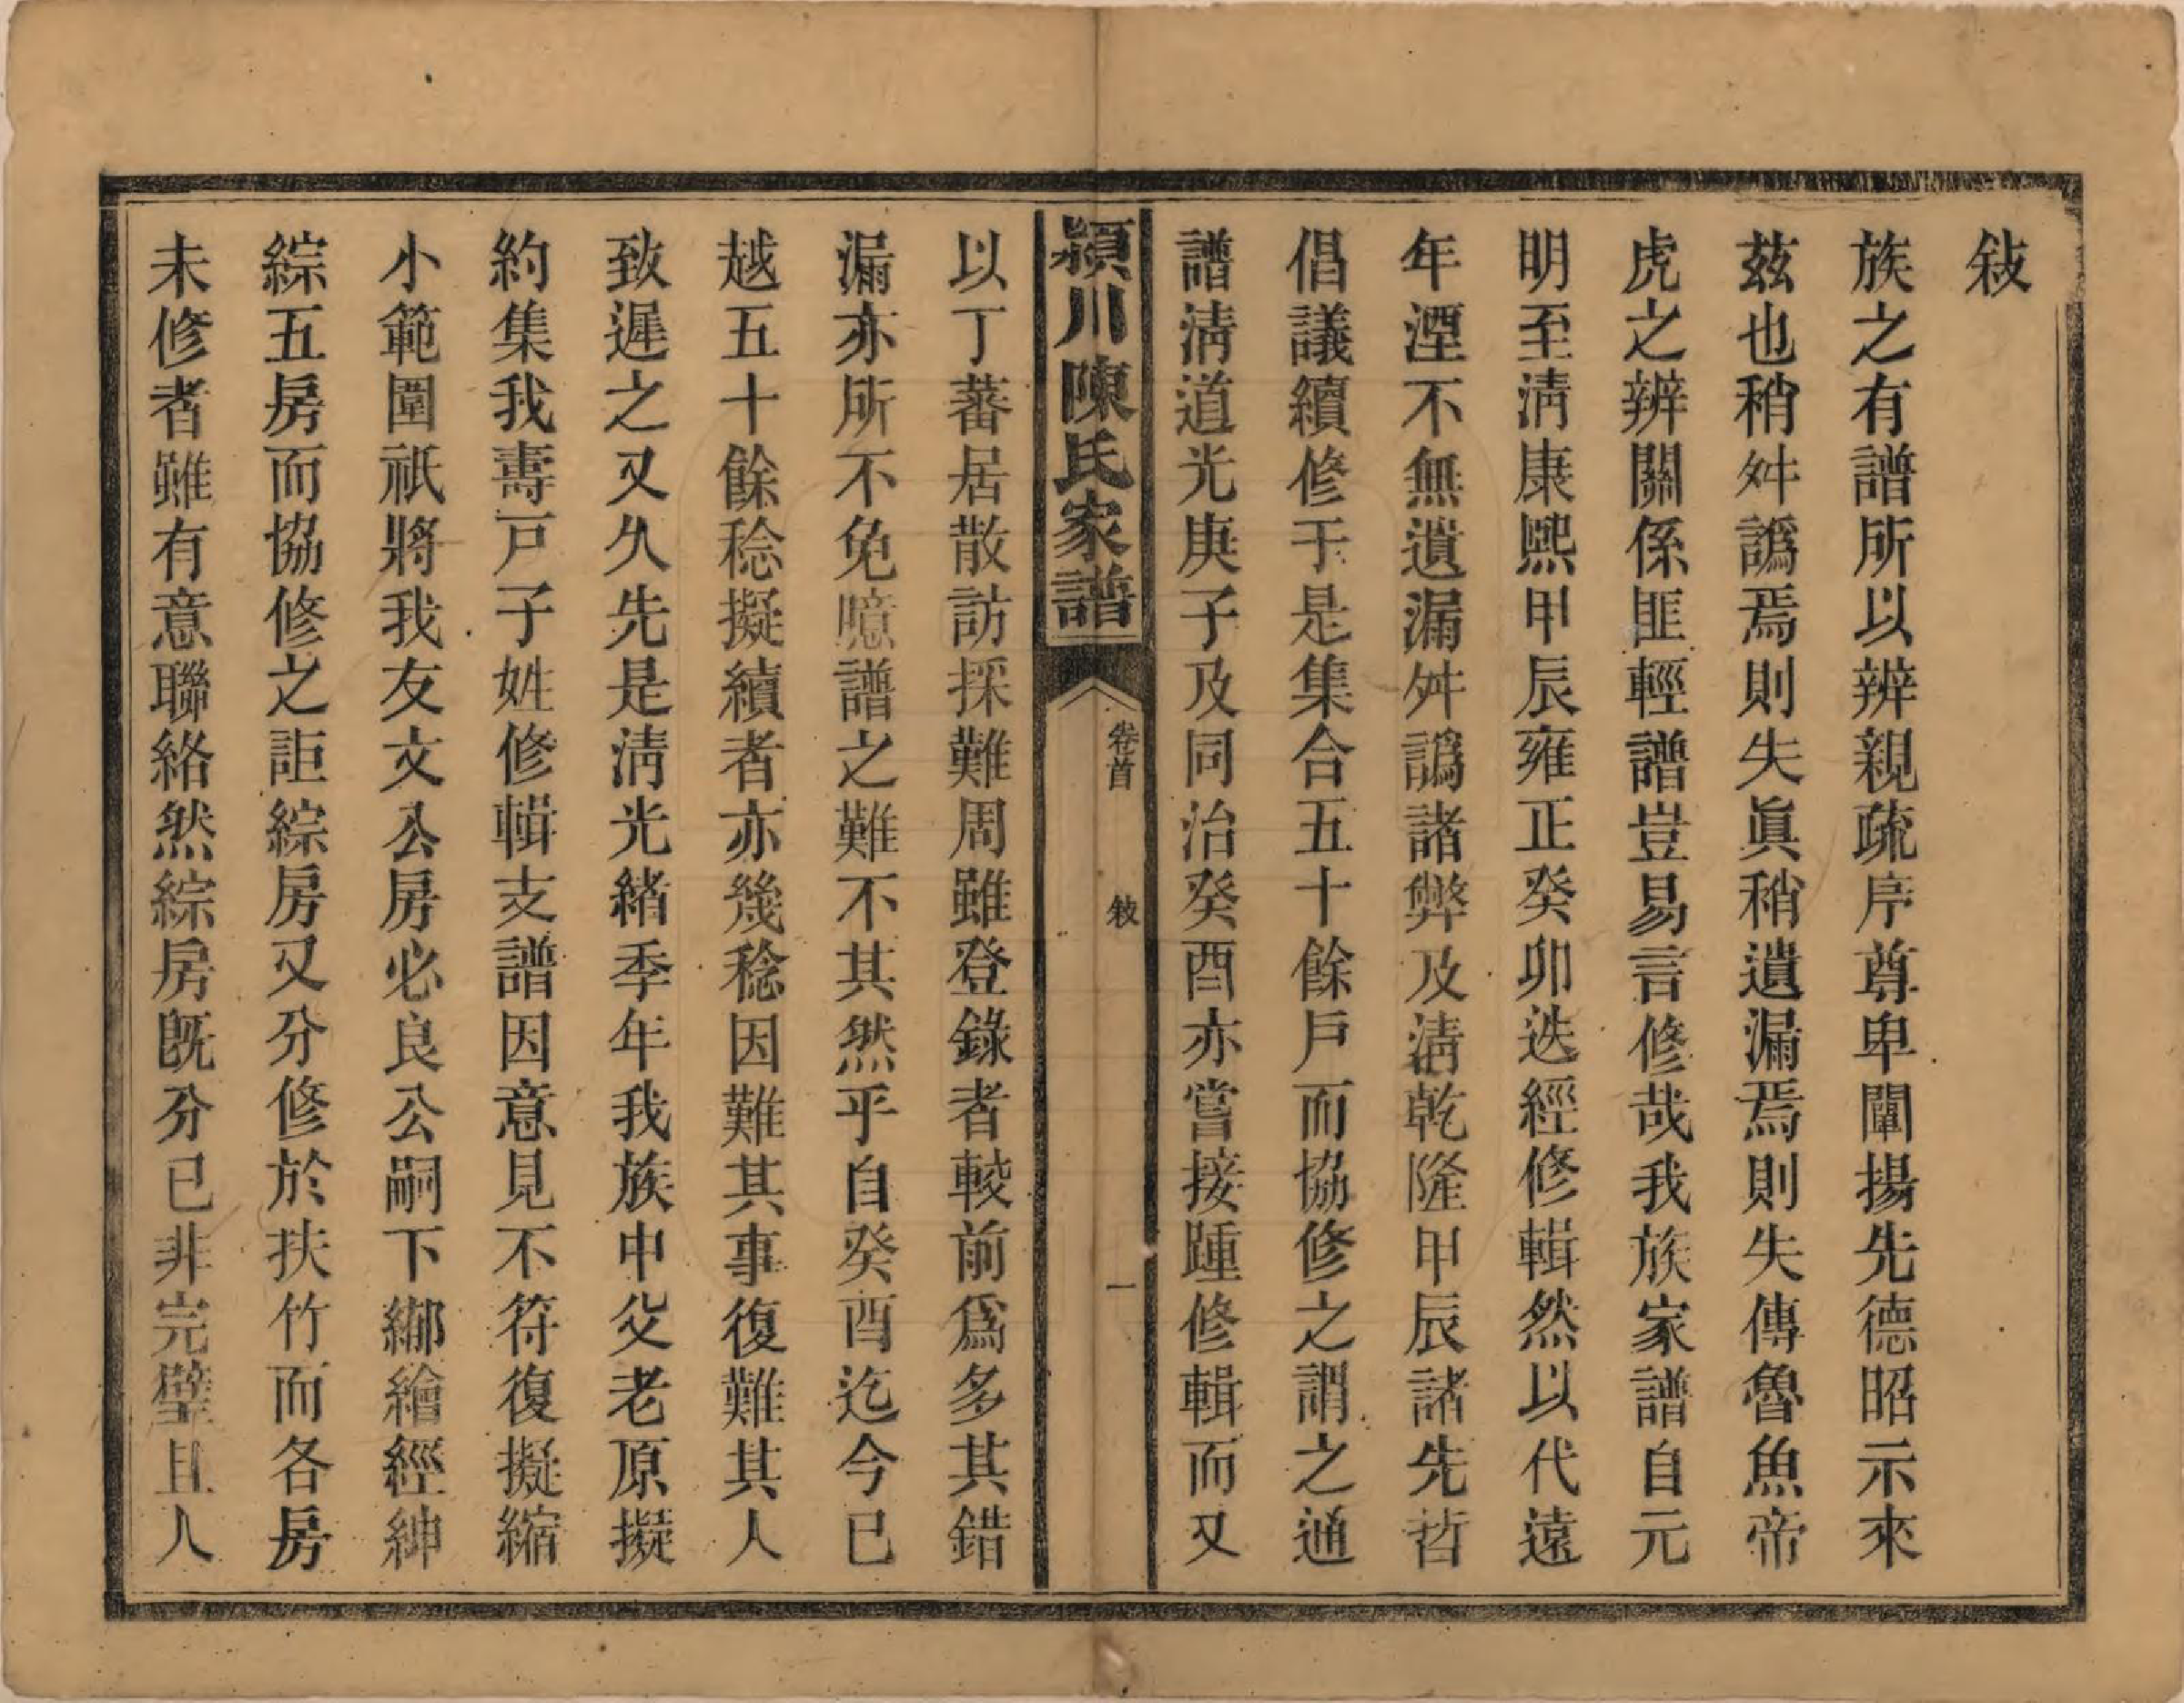 敍
族之有譜所以辨親疏序尊卑闡揚先德昭示來
茲也稍舛譌焉則失眞稍遺漏焉則失傳魯魚帝
虎之辨關係匪輕譜豈易言修哉我族家譜自元
明至淸康熙甲辰雍正癸卯迭經修輯然以代遠
年湮不無遺漏舛譌諸弊及淸乾隆甲辰諸先哲
倡議續修于是集合五十餘戶而協修之謂之通
譜淸道光庚子及同治癸酉亦嘗接踵修輯而又
潁川陳氏家譜
卷首 敍 一
以丁蕃居散訪採難周雖登錄者較前爲多其錯
漏亦所不免噫譜之難不其然乎自癸酉迄今已
越五十餘稔擬續者亦幾稔因難其事復難其人
致遲之又久先是淸光緒季年我族中父老原擬
約集我壽戶子姓修輯支譜因意見不符復擬縮
小範圍祇將我友文公房必良公嗣下綁繪經紳
綜五房而協修之詎綜房又分修於扶竹而各房
未修者雖有意聯絡然綜房旣分已非完璧且人